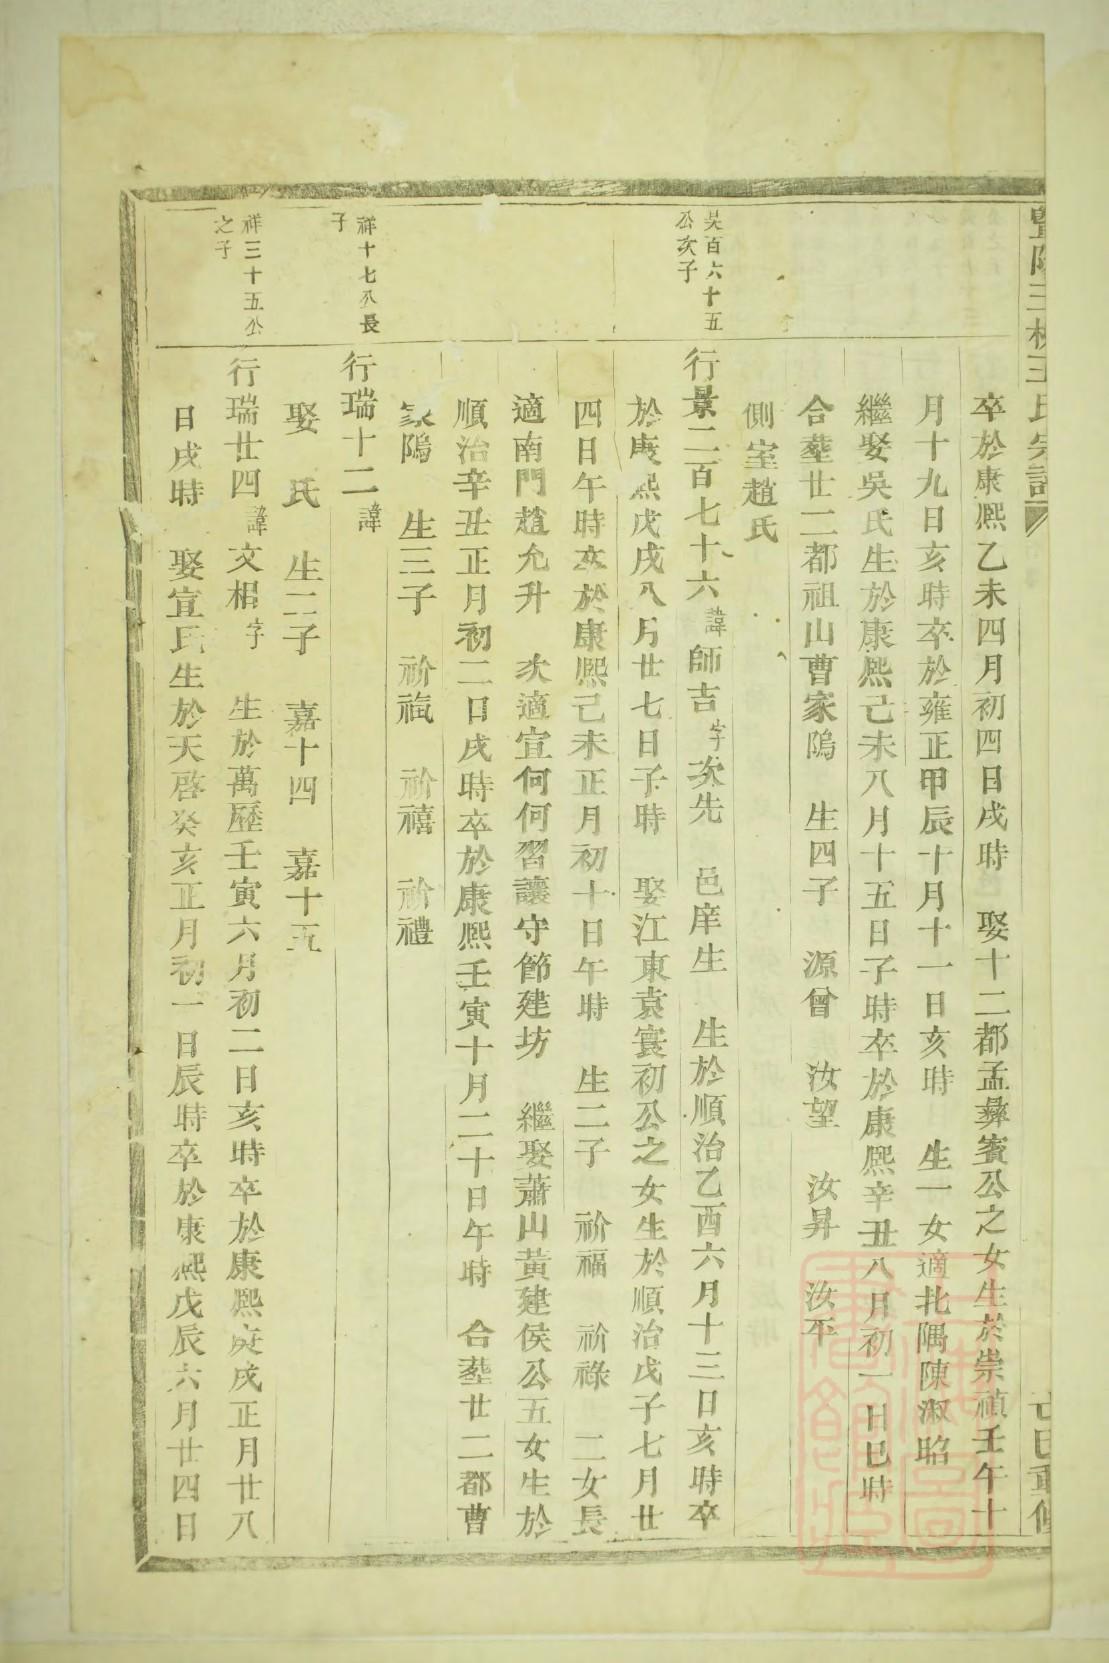 暨陽王氏宗譜
卒於康熙乙未四月初四日戌時　娶十二都孟彝賓公之女生於崇禎壬午十
一月十九日亥時卒於雍正甲辰十月十一日亥時　生一女適北隅陳淑昭
繼娶吳氏生於康熙己未八月十五日子時卒於康熙辛丑八月初一日巳時
合塟廿二都祖山曹家隖　生四子　源曾　汝望　汝昇　汝平
側室趙氏
吴百六十五
公次子
行景二百七十六諱師吉字次先　邑庠生　生於順治乙酉六月十三日亥時卒
於康熙戊戌八月廿七日子時　娶江東袁寰初公之女生於順治戊子七月廿
四日午時卒於康熙己未正月初十日午時　生二子　祄福　祄祿　二女長
適南門趙允升　次適宣何何習讓守節建坊　繼娶蕭山黃建侯公五女生於
順治辛丑正月初二日戌時卒於康熙壬寅十月二十日午時　合塟廿二都曹
家隖　生三子　祄祺　祄禧　祄禮
祥十七公長
子
行瑞十二諱
娶　氏　生二子　嘉十四　嘉十五
祥三十五公
之子
行瑞廿四諱文相字　生於萬歷壬寅六月初二日亥時卒於康熙庚戌正月廿八
日戌時　娶宣氏生於天啓癸亥正月初一日辰時卒於康熙戊辰六月廿四日
重修